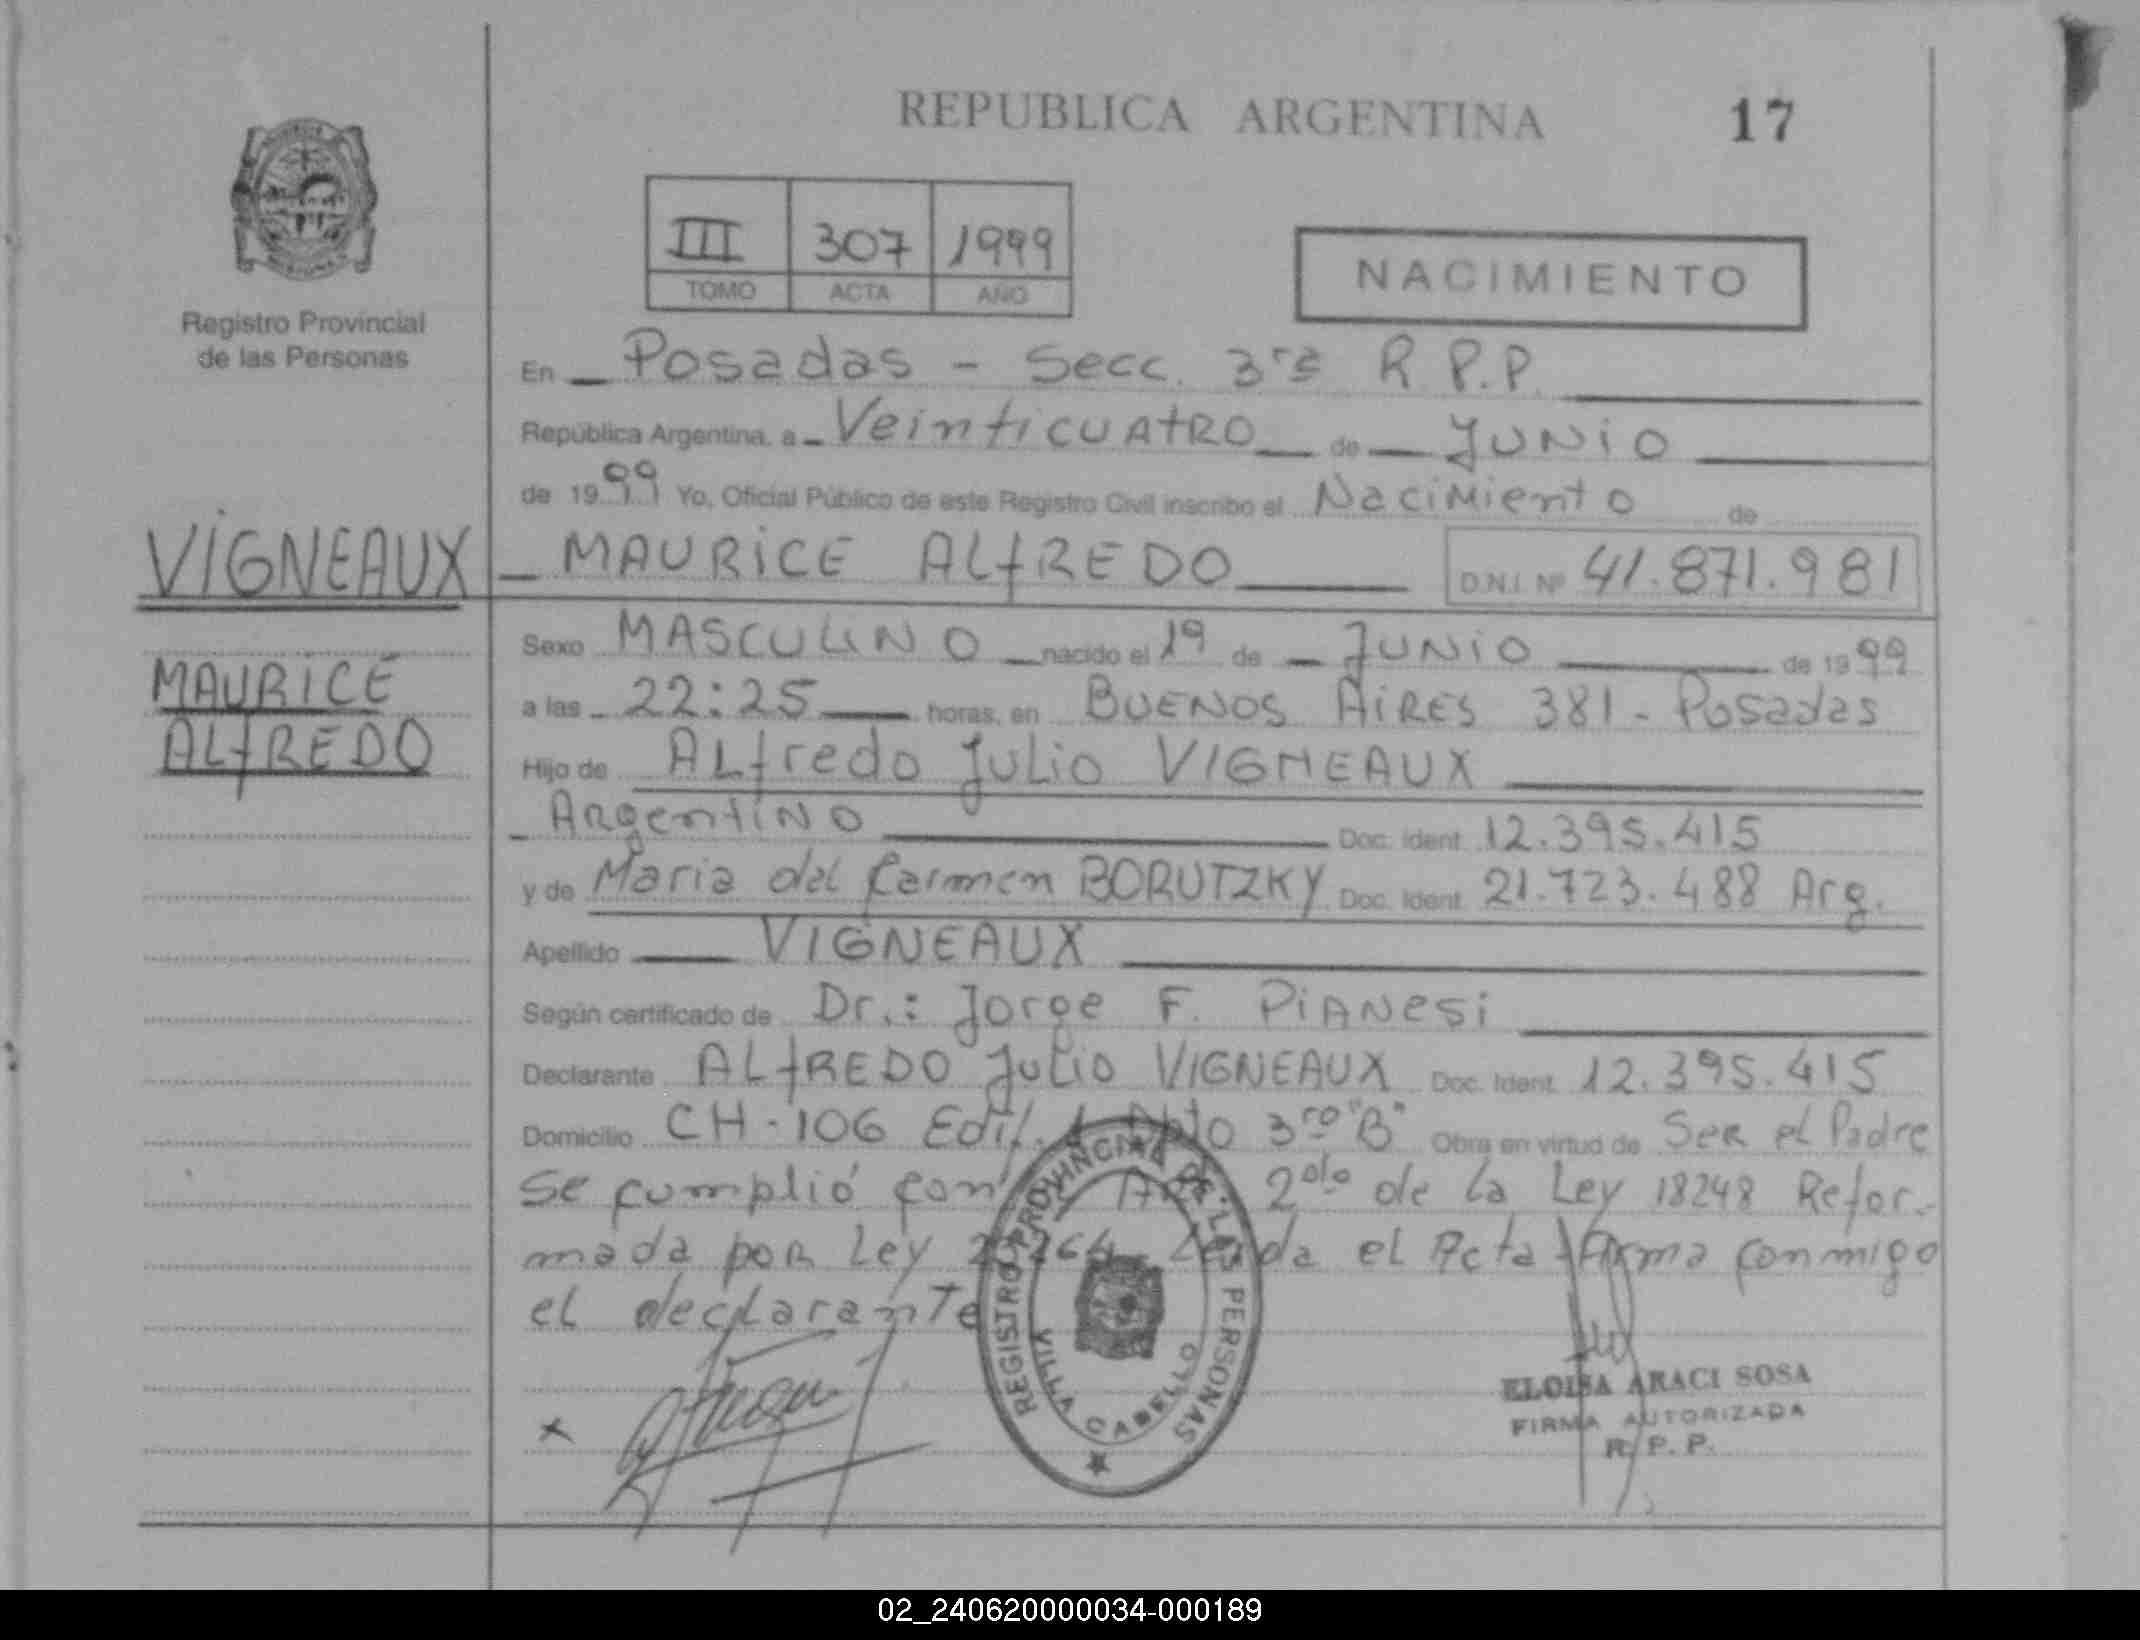 REPUBLICA ARGENTINA 17
III 307 1999
TOMO ACTA AÑO
NACIMIENTO
Registro Provincial
de las Personas
En Posadas - Secc. 3ra R.P.P.
República Argentina, a Veinticuatro de Junio
de 1999 Yo, Oficial Público de este Registro Civil inscribo el Nacimiento de
VIGNEAUX
MAURICE ALfREDO D.N.I. Nº 41.871.981
MAURICE
ALfREDO
Sexo MASCULINO nacido el 19 de Junio de 1999
a las 22:25 horas, en BUENOS AIRES 381 - Posadas
Hijo de ALfredo Julio VIGNEAUX
Argentino Doc. Ident. 12.395.415
y de Maria del Carmen BORUTZKY Doc. Ident. 21.723.488 Arg.
Apellido VIGNEAUX
Según certificado de Dr.: Jorge F. PiANesi
Declarante ALfREDO Julio VIGNEAUX Doc. Ident. 12.395.415
Domicilio CH-106 Edif. 3ro "B" Obra en virtud de Ser el Padre
Se cumplió con Art. 2do de la Ley 18248 Refor-
mada por Ley Leida el Acta firma conmigo
el declarante
REGISTRO PROVINCIAL DE LAS PERSONAS
VILLA CABELLO
ELOISA ARACI SOSA
FIRMA AUTORIZADA
R. P. P.
02_240620000034-000189